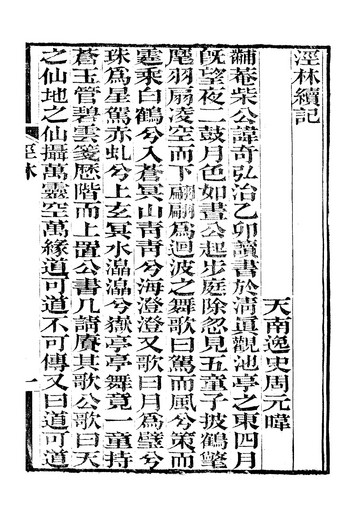 涇林續記
天南逸史周元暐
黼菴柴公諱奇弘治乙卯讀書於淸眞觀池亭之東四月
旣望夜二鼓月色如晝公起步庭除忽見五童子披鶴氅
麾羽扇凌空而下翩翩爲迴波之舞歌曰駕而風兮策而
霆乘白鶴兮入蒼冥山靑靑兮海澄澄又歌曰月爲璧兮
珠爲星駕赤虬兮上玄冥水瀛瀛兮嶽亭亭舞竟一童持
蒼玉管碧雲箋歷階而上置公書几請賡其歌公歌曰天
之仙地之仙攝萬靈空萬緣道可道不可傳又曰道可道
涇林
一